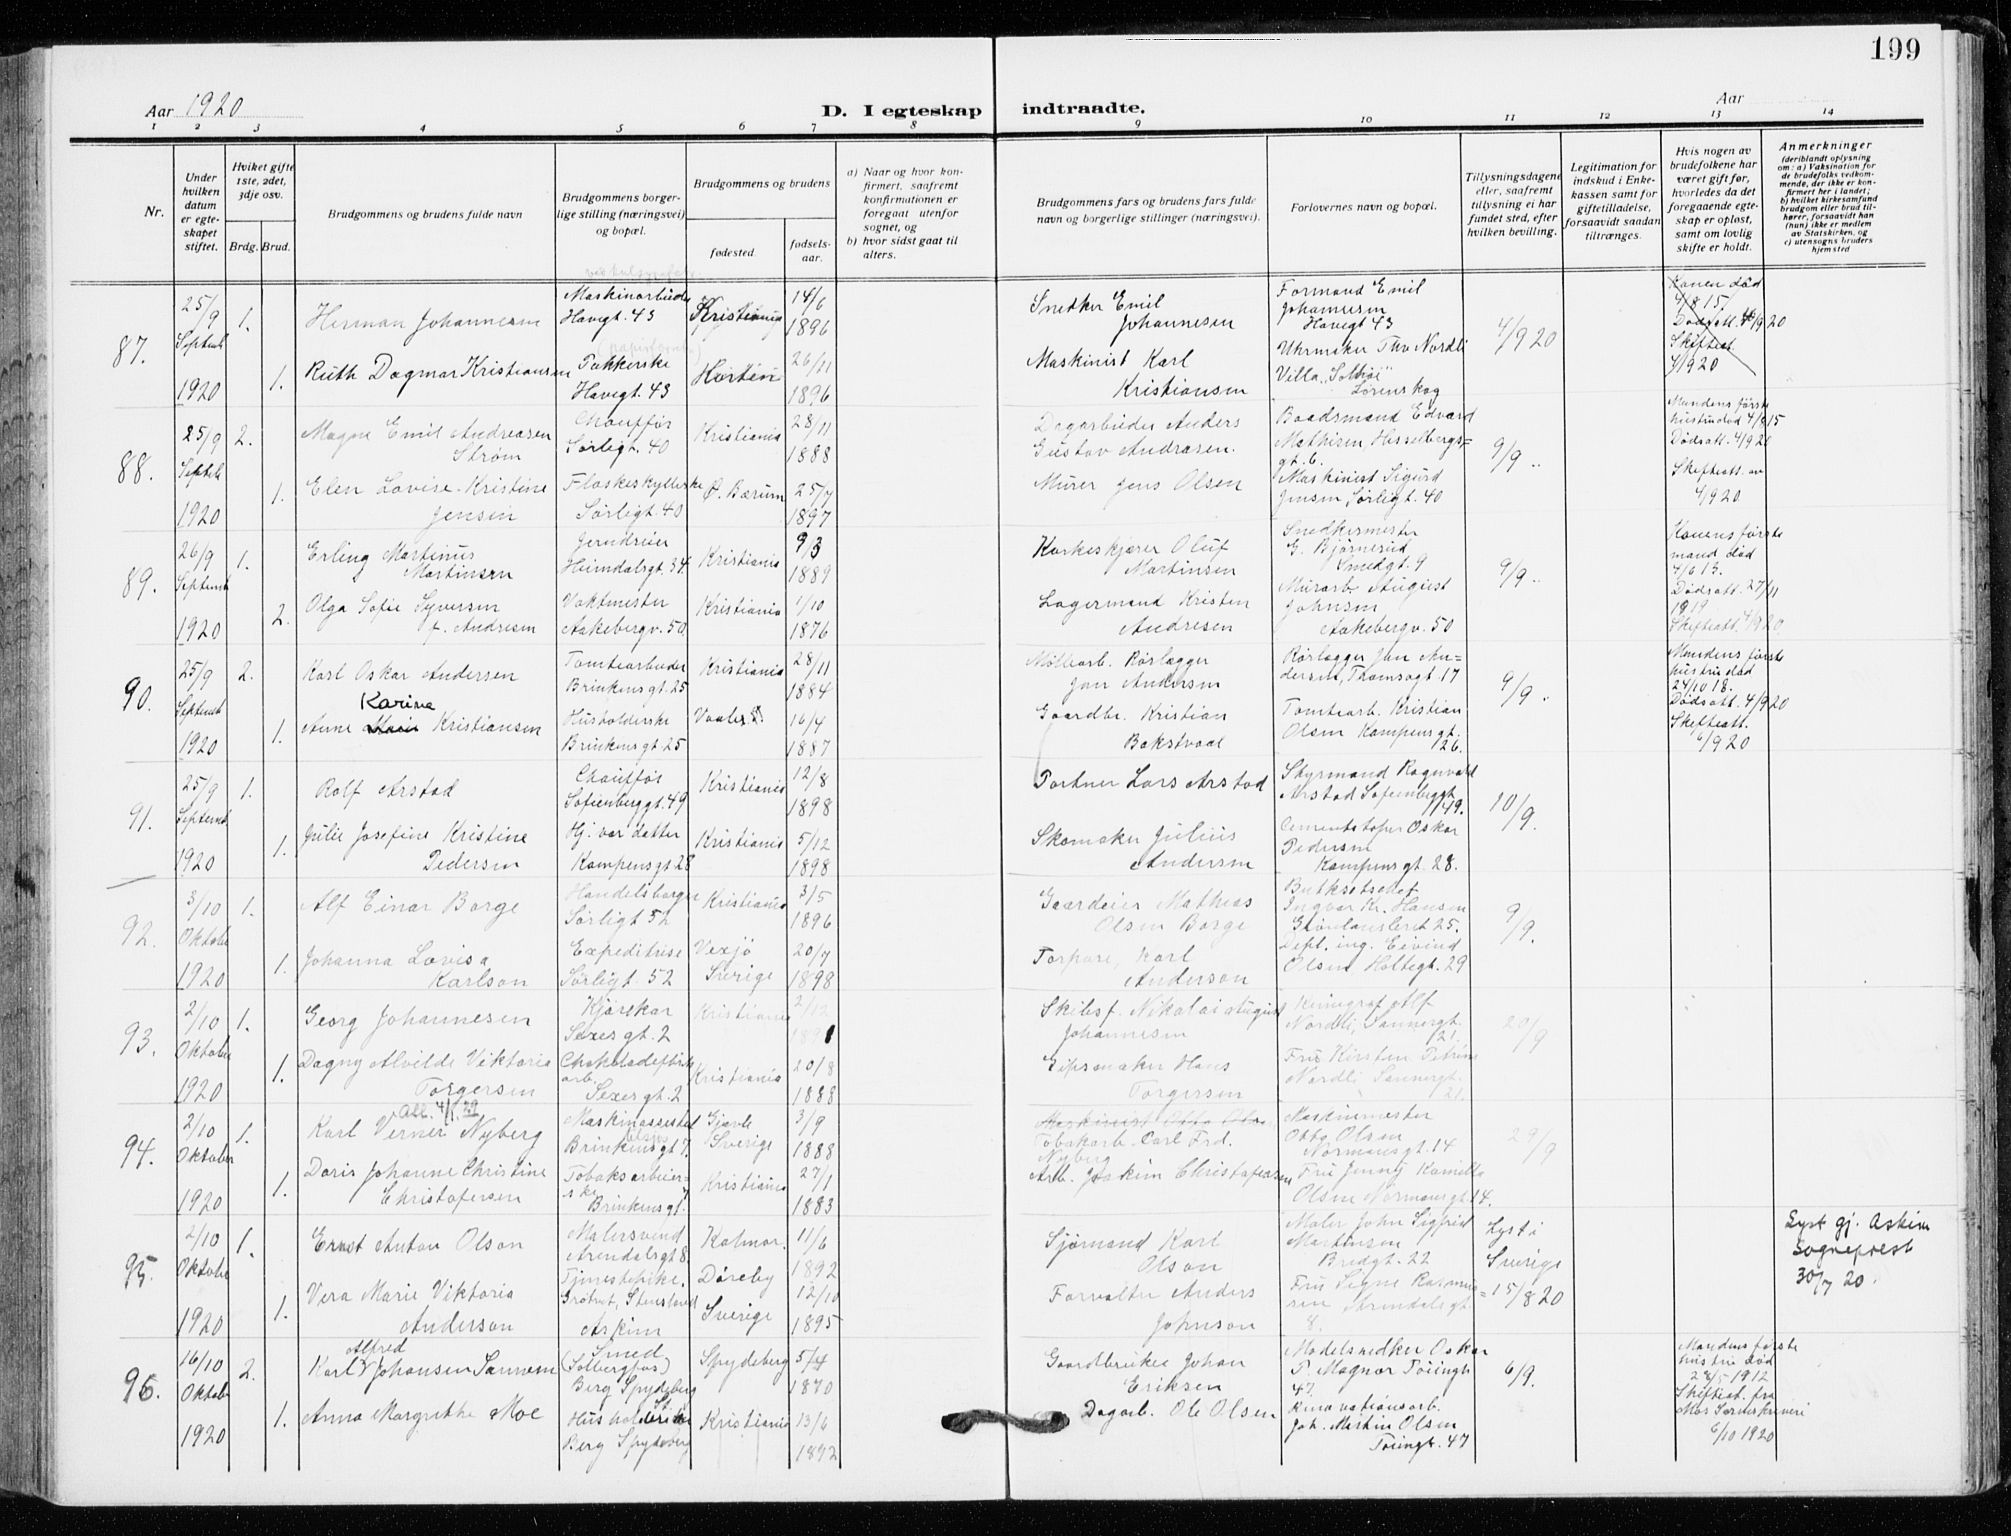 199
Aar 1920
D. I egteskap indtraadte.
Aar
1 2 3 4 5 6 7 8 9 10 11 12 13 14
Nr.
Under hvilken datum er egteskapet stiftet.
Hviket gifte 1ste, 2det, 3dje osv.
Brdg. Brud.
Brudgommens og brudens fulde navn
Brudgommens borgerlige stilling (næringsvei) og bopæl.
Brudgommens og brudens
fødested.
fødselsaar.
a) Naar og hvor konfirmert, saafremt konfirmationen er foregaat utenfor sognet, og
b) hvor sidst gaat til alters.
Brudgommens fars og brudens fars fulde navn og borgerlige stillinger (næringsvei).
Forlovernes navn og bopæl.
Tillysningsdagene eller, saafremt tillysning ei har fundet sted, efter hvilken bevilling.
Legitimation for indskud i Enkekassen samt for giftetilladelse, forsaavidt saadan tiltrænges.
Hvis nogen av brudefolkene har været gift før, hvorledes da det foregaaende egteskap er opløst, samt om lovlig skifte er holdt.
Anmerkninger
(deriblandt oplysning om: a) Vaksination for de brudefolks vedkommende, der ikke er konfirmert her i landet; b) hvilket kirkesamfund brudgom eller brud tilhører, forsaavidt han (hun) ikke er medlem av Statskirken, og c) utensogns bruders hjemsted
87.
25/9 Septemb 1920
1.
Herman Johannesen
Maskinarbeider
Havegt. 43
Kristiania
14/6 1896
Snedker Emil Johannesen
Formand Emil Johannesen
Havegt 43
4/9 20
Konen død
4/8 15
Dødsatt. 4/9 20
Skifteat
4/9 20
1.
Ruth Dagmar Kristiansen
Pakkerske
Havegt. 43
Horten
26/11 1896
Maskinist Karl Kristiansen
Uhrmaker Thv Nordli
Villa "Solhøi"
Lørenskog
88.
25/9 Septemb 1920
2.
Magne Emil Andreasen Strøm
Chauffør
Sørligt. 40
Kristiania
28/11 1888
Dagarbeider Anders Gustav Andreasen.
Baadsmand Edvard Mathisen, Hesselbergsgt. 6.
9/9 "
Mandens første hustru død 4/8 15
Dødsatt. 4/9 20
Skifteatt. av
4/9 20
1.
Elen Lovise Kristine Jensen
Flaskeskyllerske
Sørligt. 40
Ø. Bærum
25/7 1897
Murer Jens Olsen
Maskinist Sigurd Jensen Sørligt. 40
89.
26/9 Septemb 1920
1.
Erling Martinus Martinsen
Heimdalsgt. 34.
Kristiania
9/3 1889
Korkeskjærer Oluf Martinsen
Snedkermester
E. Bjørnerud
Smedgt. 9
9/9 "
Konens første mand død
4/6 13.
Dødsatt. 27/11 1919
Skifteatt. 4/9 20.
2.
Olga Sofie Syversen f. Andresen
Vaktmester
Aakebergv. 50
Kristiania
1/10 1876
Lagermand Kristen Andresen
Murarb. August Johnsen
Aakebergv. 50
90.
25/9 Septemb 1920
2.
Karl Oskar Andersen
Tomtearbeider
Brinkens gt. 25
Kristiania
28/11 1884
Møllearb. Rørlægger Jan Andersen
Rørlægger Jan Andersen, Thomsogt 17
9/9 "
Mandens første hustru død
24/10 18.
Dødsatt. 4/9 20
Skifteatt.
6/9 20
1.
Karina
Anne Marie Kristiansen
Husholderske
Brinkens gt 25
Vaaler
16/4 1887
Gaardbr. Kristian Bakstvaal
Tomtearb. Kristian Olsen Kampensgt. 26.
91.
25/9 Septemb 1920
1.
Rolf Arstad
Chauffør
Sofienberggt. 49
Kristiania
12/8 1898
Portner Lars Arstad
Styrmand Ragnvald Arstad Sofienberggt. 49.
10/9.
1.
Julie Josefine Kristine Pedersen
Hj. vær. datter
Kampensgt 28
Kristiania
5/12 1898
Skomaker Julius Andersen
Cementstøper Oskar Pedersen
Kampens gt. 28.
92.
3/10 Oktober 1920
1.
Alf Einar Borge
Handelsborger
Sørligt 52
Kristiania
3/5 1896
Gaardeier Mathias Olsen Borge
Ingvar Kr. Hansen
Grønlandsleret 25.
9/9.
1.
Johanna Lovisa Karlson
Expeditrise
Sørligt. 52
Vexjö Sverige
20/7 1898
Torpare, Karl Anderson
Dept. ing. Eivind Olsen Holtegt. 29
93.
2/10 Oktober 1920
1.
Georg Johannesen
Kjørekar
Sexesgt. 2
Kristiania
2/12 1891
Skibsf. Nikolai August Johannesen
Alf Nordli, Sannergt. 21.
20/9
1.
Dagny Alvilde Viktoria Torgersen
Chokoladefbrik arb.
Sexesgt. 2
Kristiania
20/8 1888
Gipsmaker Hans Torgersen
Fru Kirsten Petrine Nordli Sannergt. 21.
94.
2/10 Oktober 1920
1.
Karl Verner Nyberg
Maskinassistent
Brinkensgt 7.
Gjävle Sverige
3/9 1888
Maskinist Otto Olsen
Tobakarb. Carl Frd. Nyberg
Maskinmester
Otto Olsen
Normansgt. 14
29/9
1.
Doris Johanne Christine Christofersen
Tobaksarbeierske
Brinkensgt. 7
Kristiania
27/1 1883
Arb. Joakim Christofersen
Fru Jenny Kamilla Olsen Normansgt. 14.
95.
2/10 Oktober 1920
1.
Ernst Anton Olson
Malersvend
Arendalsgt 8.
Kalmar.
11/6 1892
Sjømand Karl Olson
Maler John Sigfrid Martinsen
Bredgt. 22
Lyst i Sverige
15/8 20
Lyst gj. Askim Sogneprest
30/7 20.
1.
Vera Marie Viktoria Anderson
Tjenestepike.
Askim
Döreby Sverige
12/10 1895
Forvalter Anders Johnson
Fru Signe Rasmussen Arendalsgt. 8.
96.
16/10 Oktober 1920
2.
Alfred
Karl Johansen Sannem
Smed
(Solbergfos)
Berg Spydeberg
Spydeberg
5/4 1870
Gaardbruker Johan Eriksen
Modelsnedker Oskar P. Magnor Tøiengt 47.
6/9.
Mandens første hustru død
28/5 1912
Skifteat. fra
Mos Sorenskriveri
6/10 1920
1.
Anna Margrethe Moe
Husholderske
Berg Spydeberg
Kristiania
13/6 1892
Dagarb. Ole Olsen
Joh. Martin Olsen
Tøiengt. 47